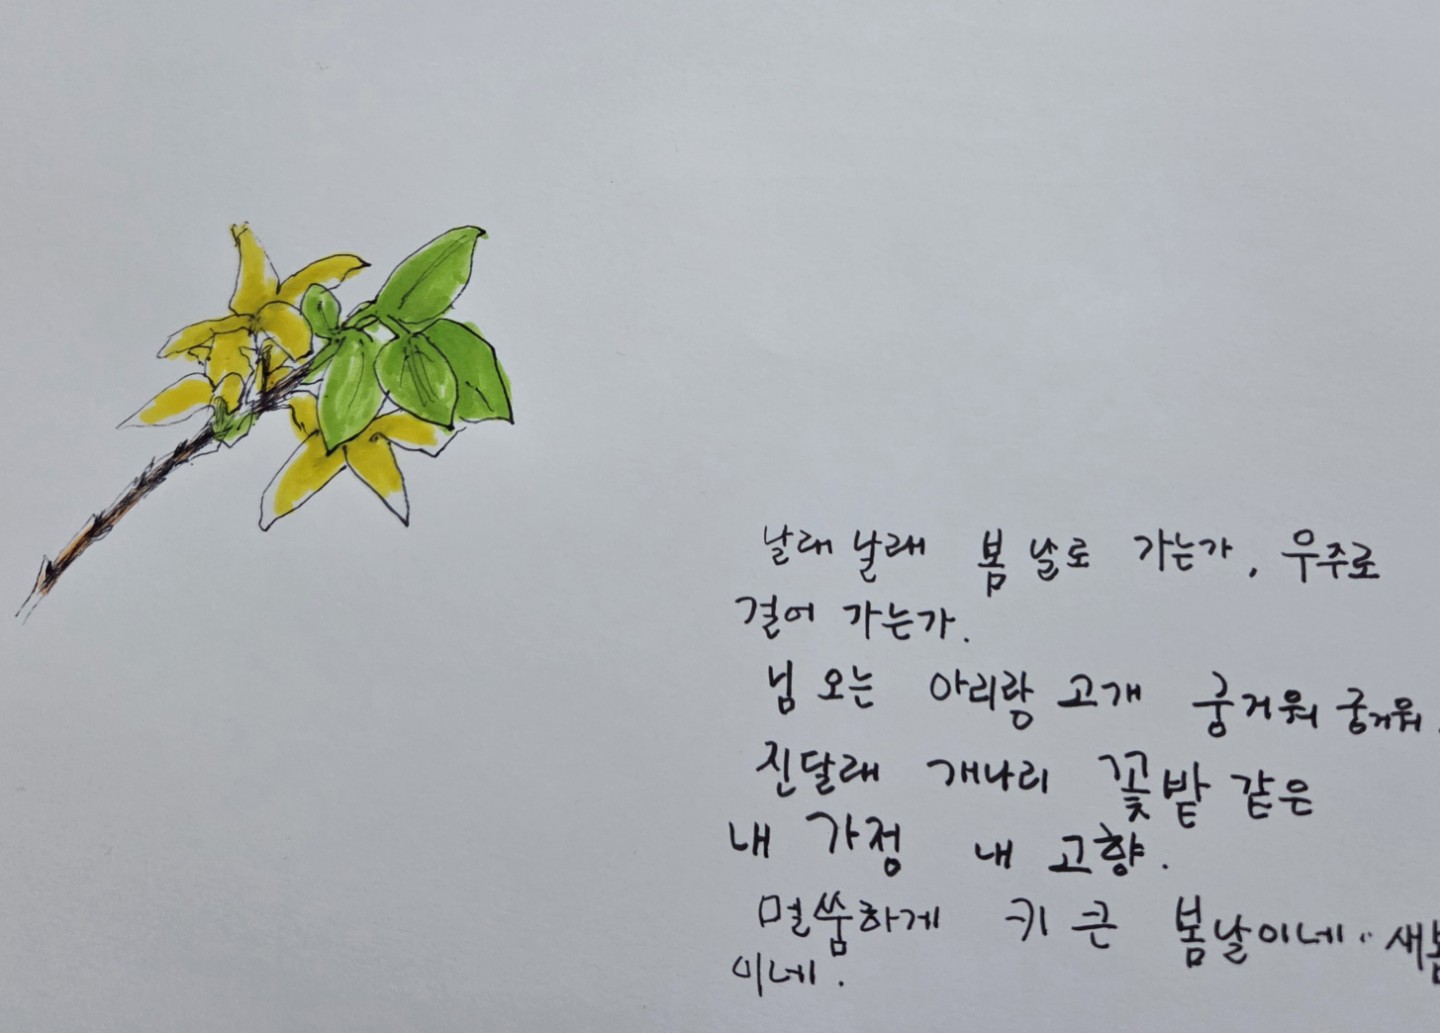 날래 날래 봄 날로 가는가, 우주로
걸어 가는가.
님 오는 아리랑 고개 궁거워 궁거워.
진달래 개나리 꽃밭 같은
내 가정 내 고향.
멀쑴하게 키 큰 봄날이네.. 새봄
이네.